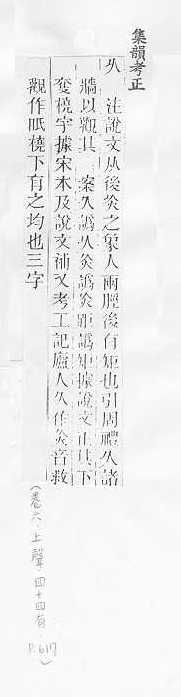 集韻考正
夂　注說文从後灸之象人兩脛後有距也引周禮久諸
牆以觀其　案久譌夂灸譌炙距譌矩據說文正其下
奪橈字據宋本及說文補又考工記廬人久作灸音救
觀作眡橈下有之均也三字
（卷六．上聲．四十四有
P.617）